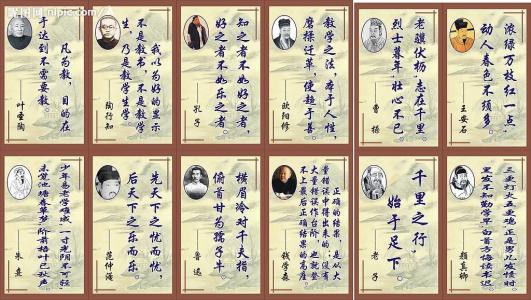 昵图网 nipic.com
凡为教，目的在
于达到不需要教。
叶圣陶
我以为好的显示
不是教书，不是教学
生，乃是教学生学。
陶行知
知之者不如好之者，
好之者不如乐之者。
孔子
教学之法，本于人性，
磨揉迁革，使趋于善。
欧阳修
老骥伏枥，志在千里。
烈士暮年，壮心不已。
曹操
浓绿万枝红一点，
动人春色不须多。
王安石
少年易老学难成，一寸光阴不可轻。
未觉池塘春草梦，阶前梧叶已秋声。
朱熹
先天下之忧而忧，
后天下之乐而乐。
范仲淹
横眉冷对千夫指，
俯首甘为孺子牛
鲁迅
正确的结果，是从大
量错误中得出来的；没有
大量错误作台阶，也就登
不上最后正确结果的高座。
钱学森
千里之行，
始于足下。
老子
三更灯火五更鸡，正是男儿发愤时。
黑发不知勤学早，白首方悔读书迟。
颜真卿